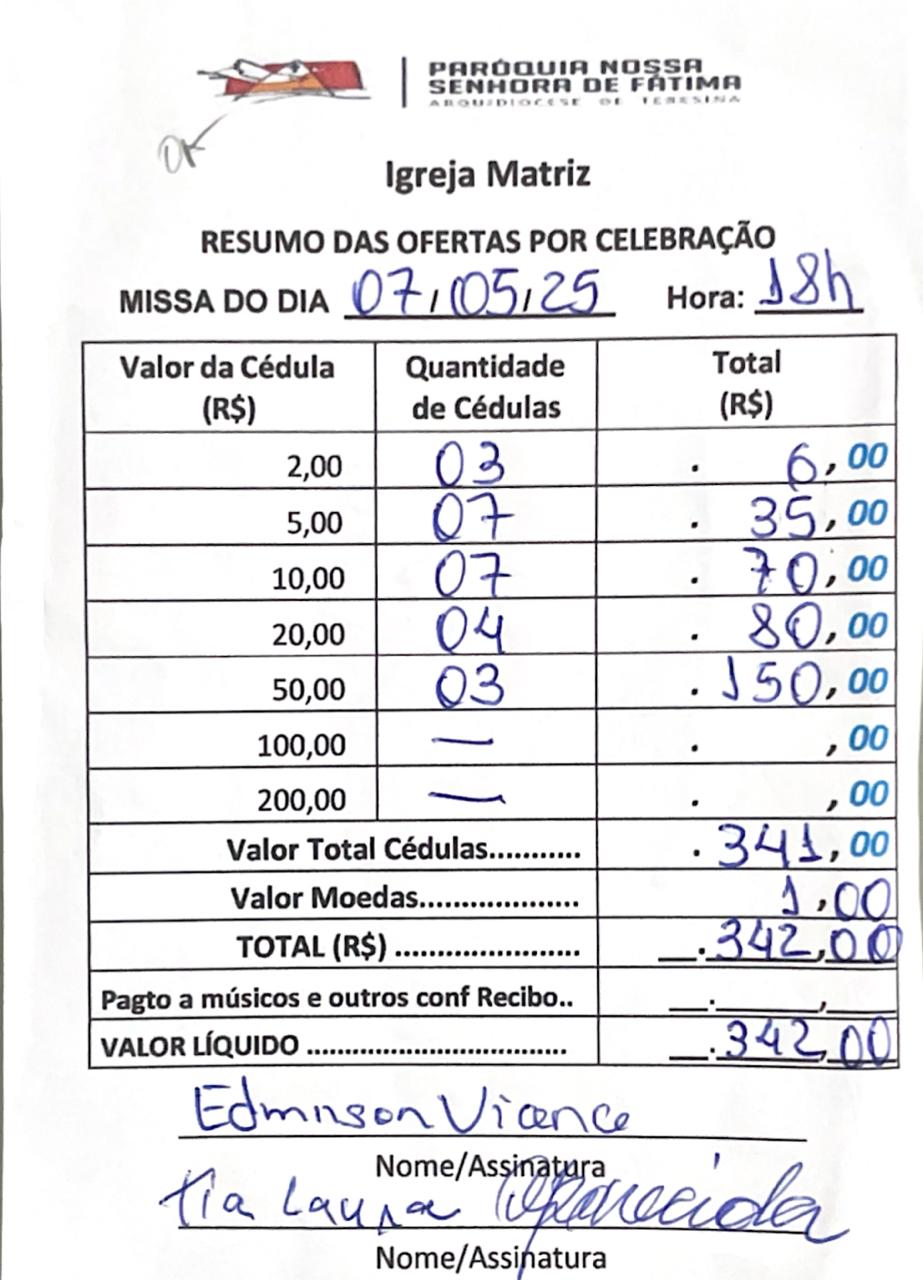 PARÓQUIA NOSSA
SENHORA DE FÁTIMA
ARQUIDIOCESE DE TERESINA
OK
Igreja Matriz
RESUMO DAS OFERTAS POR CELEBRAÇÃO
MISSA DO DIA 07/05/25 Hora: 18h
Valor da Cédula (R$) Quantidade de Cédulas Total (R$)
2,00 03 . 6,00
5,00 07 . 35,00
10,00 07 . 70,00
20,00 04 . 80,00
50,00 03 . 150,00
100,00 — . ,00
200,00 — . ,00
Valor Total Cédulas........... . 341,00
Valor Moedas.................... 1,00
TOTAL (R$) ....................... __.342,00
Pagto a músicos e outros conf Recibo.. __.______,____
VALOR LÍQUIDO ................................ __.342,00
Vicence
Nome/Assinatura
Tia Laura Aparecida
Nome/Assinatura